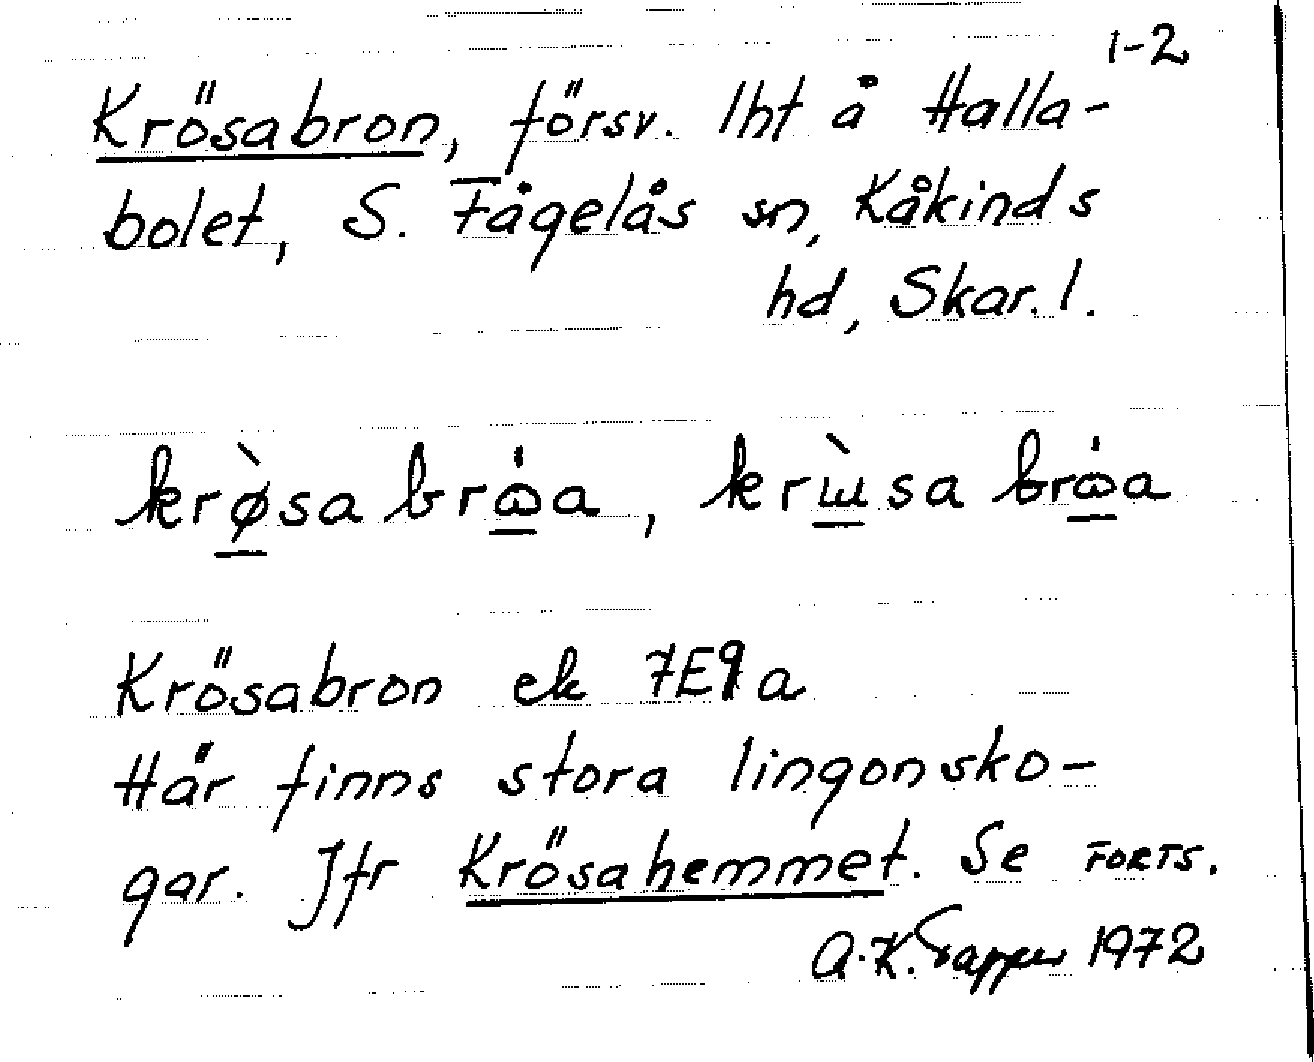 1-2
Krösabron, försv. lht å Halla-
bolet, S. Fågelås sn, Kåkinds
hd, Skar. l.
krø̀sa brɷ́a, krɯ̀sa brɷ́a
Krösabron ek 7E9a
Här finns stora lingonsko-
gar. Jfr Krösahemmet. Se FORTS.
A.K. 1972